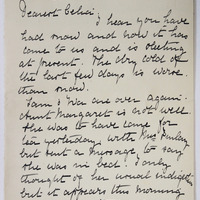 Dearest Celia:
I hear you have
had snow and now it has
come to us and is sleeting
at present. The dry cold of
the last few days is worse
than snow.
Sam & Wa are over again.
Aunt Margaret is not well
She was to have come for
tea yesterday with Mrs Dunlay
but sent a message to say
she was in bed. I only
thought of her usual indigestion
but it appears this morning